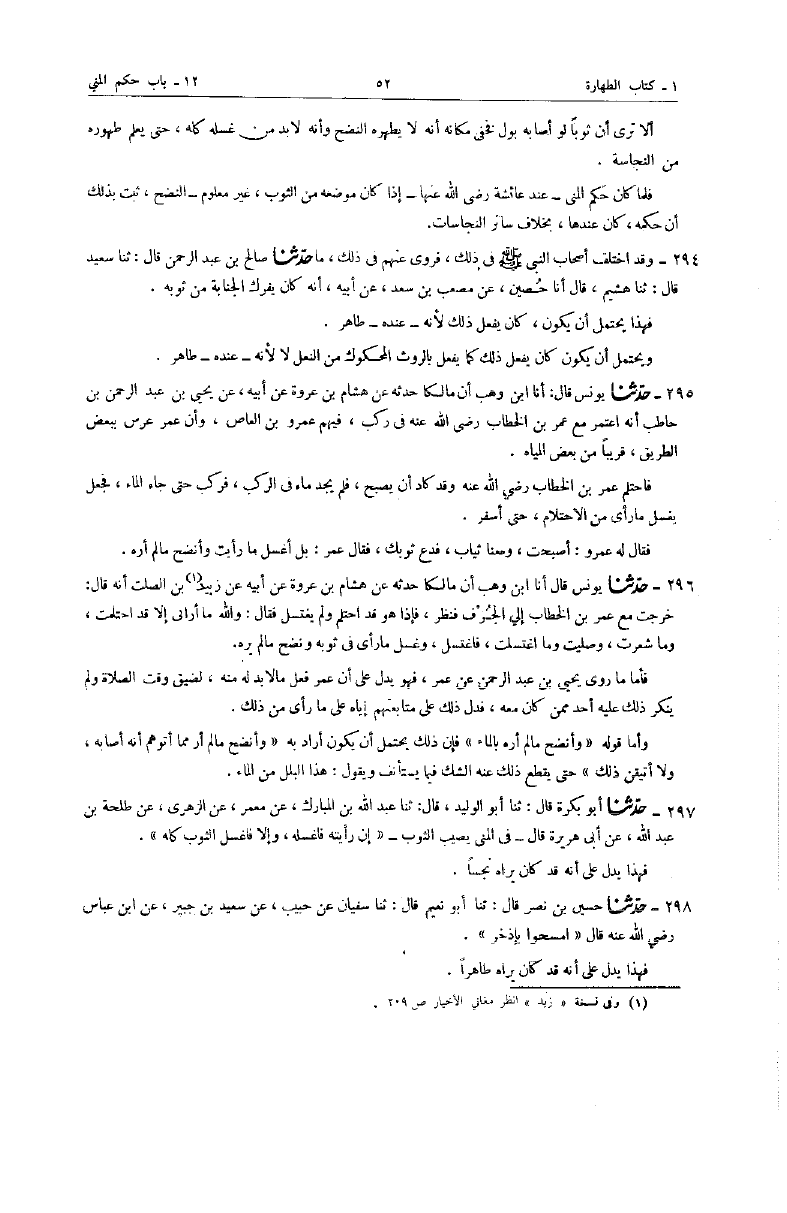 ١ ـ كتاب الطهارة ٥٢ ١٢ ـ باب حكم المني
ألا ترى أن ثوباً لو أصابه بول فخفى مكانه أنه لا يطهره النضح وأنه لابد من غسله كله ، حتى يعلم طهوره
من النجاسة .
فلما كان حكم المنى ــ عند عائشة رضى الله عنها ــ إذا كان موضعه من الثوب ، غير معلوم ــ النضح ، ثبت بذلك
أن حكمه ، كان عندها ، بخلاف سائر النجاسات.
٢٩٤ ـ وقد اختلف أصحاب النبى ﷺ فى ذلك ، فروى عنهم فى ذلك ، ما حدّثنا صالح بن عبد الرحمن قال : ثنا سعيد
قال : ثنا هشيم ، قال أنا حُصين ، عن مصعب بن سعد ، عن أبيه ، أنه كان يفرك الجنابة من ثوبه .
فهذا يحتمل أن يكون ، كان يفعل ذلك لأنه ــ عنده ــ طاهر .
ويحتمل أن يكون كان يفعل ذلك كما يفعل بالروث المحكوك من النعل لا لأنه ــ عنده ــ طاهر .
٢٩٥ ـ حدّثنا يونس قال: أنا ابن وهب أن مالكا حدثه عن هشام بن عروة عن أبيه ، عن يحيى بن عبد الرحمن بن
حاطب أنه اعتمر مع عمر بن الخطاب رضى الله عنه فى ركب ، فيهم عمرو بن العاص ، وأن عمر عرس ببعض
الطريق ، قريباً من بعض المياه .
فاحتلم عمر بن الخطاب رضي الله عنه وقد كاد أن يصبح ، فلم يجد ماء فى الركب ، فركب حتى جاء الماء ، فجعل
يغسل مارأى من الاحتلام ، حتى أسفر .
فقال له عمرو : أصبحت ، ومعنا ثياب ، فدع ثوبك ، فقال عمر : بل أغسل ما رأيت وأنضح مالم أره .
٢٩٦ ـ حدّثنا يونس قال أنا ابن وهب أن مالكا حدثه عن هشام بن عروة عن أبيه عن زبيد(١) بن الصلت أنه قال:
خرجت مع عمر بن الخطاب إلي الجُرْف فنظر ، فإذا هو قد احتلم ولم يغتسل فقال : والله ما أرانى إلا قد احتلمت ،
وما شعرت ، وصليت وما اغتسلت ، فاغتسل ، وغسل مارأى فى ثوبه ونضح مالم يره.
فأما ما روى يحيى بن عبد الرحمن عن عمر ، فهو يدل على أن عمر فعل مالابد له منه ، لضيق وقت الصلاة ولم
ينكر ذلك عليه أحد ممن كان معه ، فدل ذلك على متابعتهم إياه على ما رأى من ذلك .
وأما قوله « وأنضح مالم أره بالماء » فإن ذلك يحتمل أن يكون أراد به « وأنضح مالم أر مما أتوهم أنه أصابه ،
ولا أتيقن ذلك » حتى يقطع ذلك عنه الشك فيما يستأنف ويقول : هذا البلل من الماء .
٢٩٧ ـ حدّثنا أبو بكرة قال : ثنا أبو الوليد ، قال: ثنا عبد الله بن المبارك ، عن معمر ، عن الزهرى ، عن طلحة بن
عبد الله ، عن أبى هريرة قال ــ فى المنى يصيب الثوب ــ « إن رأيته فاغسله ، وإلا فاغسل الثوب كله » .
فهذا يدل على أنه قد كان يراه نجساً .
٢٩٨ ـ حدّثنا حسين بن نصر قال : ثنا أبو نعيم قال : ثنا سفيان عن حبيب ، عن سعيد بن جبير ، عن ابن عباس
رضي الله عنه قال « امسحوا بإذخر » .
فهذا يدل على أنه قد كان يراه طاهراً .
(١) وفى نسخة « زيد » انظر مغاني الأخيار ص ٢٠٩ .